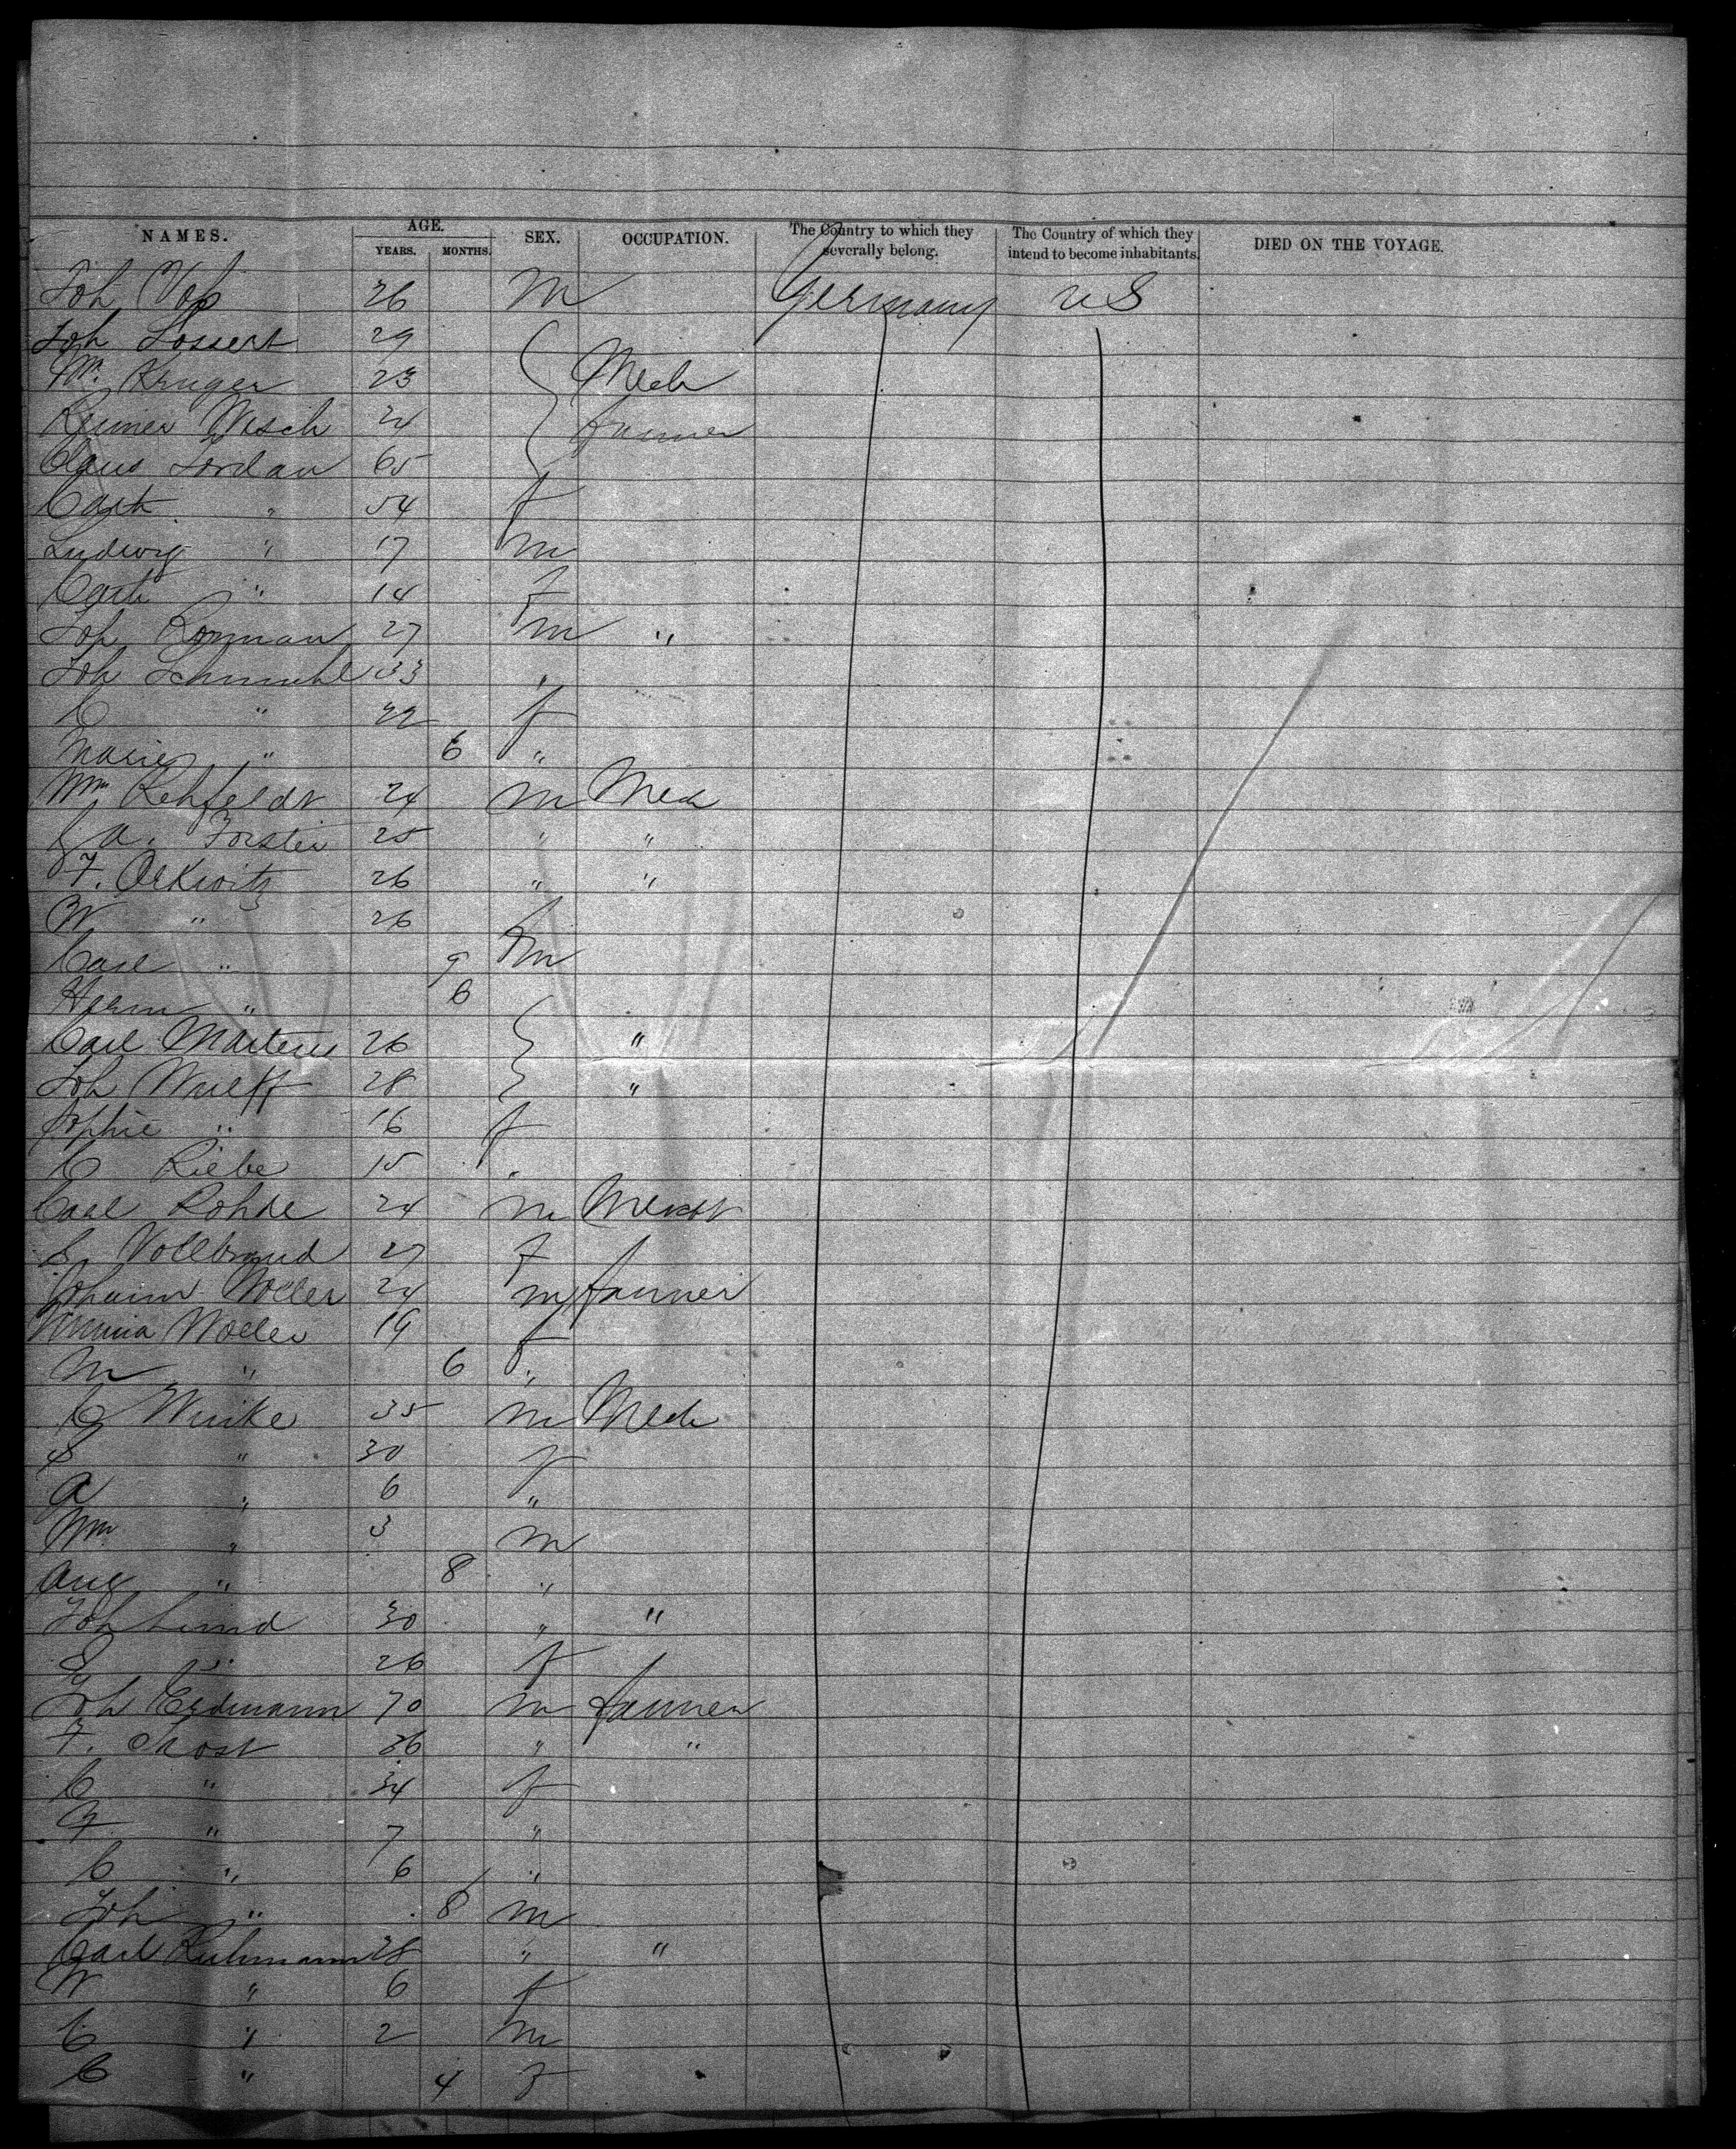 NAMES. AGE. YEARS. MONTHS. SEX. OCCUPATION. The Country to which they severally belong. The Country of which they intend to become inhabitants. DIED ON THE VOYAGE.
Joh Voß 26 m Germany US
Joh Lossert 29
Wm. Kruger 23 Mech
Reimer Wesch 24 farmer
Claus Jordan 65
Cath " 54 f
Ludwig " 17 m
Cath " 14 f
Joh Borman 27 m "
Joh Schmuhl 33 "
C " 22 f
Marie " 6 "
Wm Rehfeldt 24 m Mech
A. Forster 25 " "
F. Oekwitz 26 " "
W " 26 f
Carl " 9 m
Herm " 6
Carl Martens 26 "
Joh Wulff 28 "
Sophie " 16 f
C Liebe 15 "
Carl Rohde 24 m Mercht
S. Vollbrand 27 f
Johann Woller 24 m farmer
Woller 19 f
M " 6 "
C Winke 35 m Mech
S " 30 f
A " 6 "
Wm " 3 m
Aug " 8 "
Joh Lind 30 " "
S " 26 f
Joh Erdmann 70 m farmer
F. Most 36 " "
C " 34 f
F " 7 "
C " 6 "
Joh " 8 m
Carl Ruhmann 28 " "
W " 6 f
C " 2 m
C " 4 f